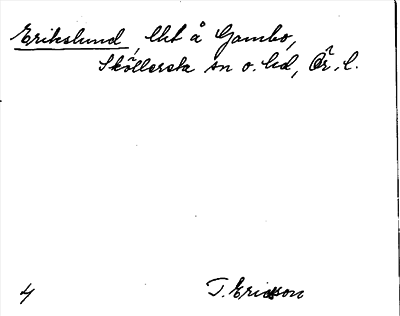 Erikslund, lht å Gambo,
Sköllersta sn o. hd, Ör. l.
4 T. Ericsson